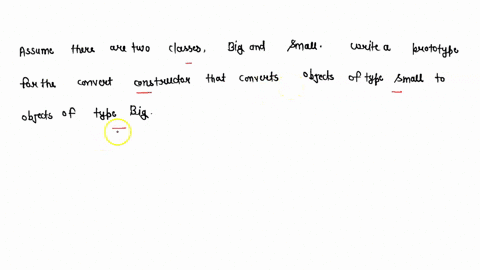 Assume there are two classes, Big and Small. Write a prototype
for the convert constructor that converts objects of type Small to
objects of type Big.